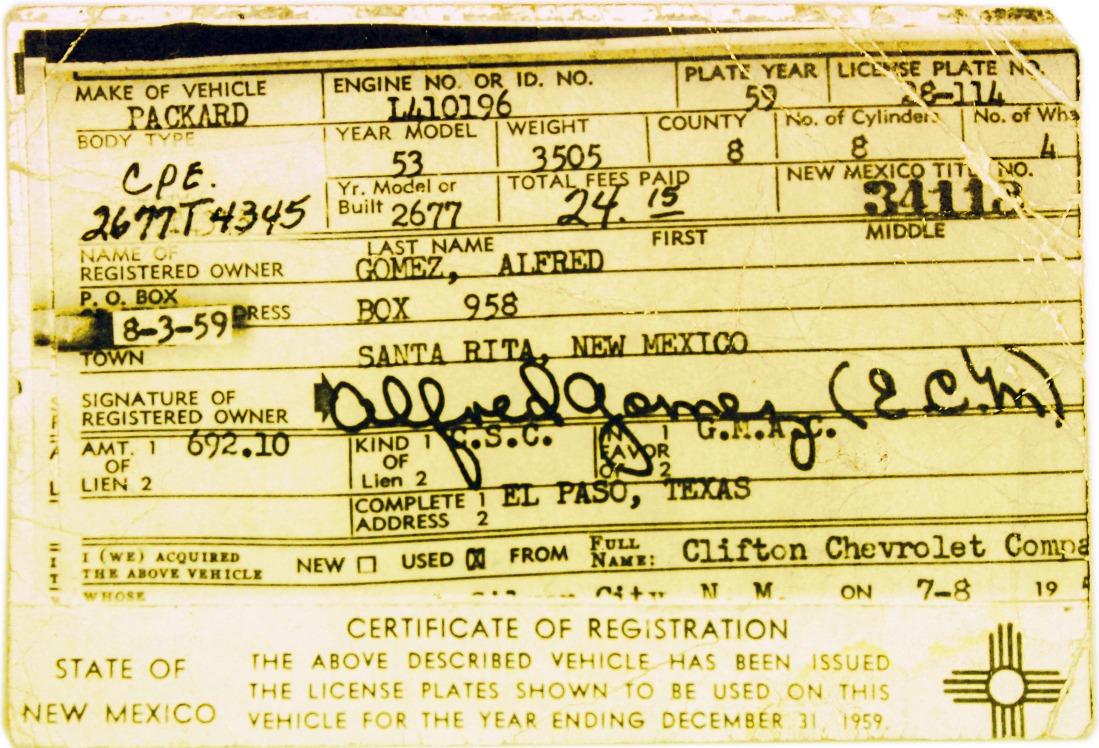 MAKE OF VEHICLE ENGINE NO. OR ID. NO. PLATE YEAR LICENSE PLATE NO.
PACKARD L410196 59 28-114
BODY TYPE YEAR MODEL WEIGHT COUNTY No. of Cylinders No. of Whs
CPE. 53 3505 8 8 4
Yr. Model or Built 2677 TOTAL FEES PAID 24.15 NEW MEXICO TITLE NO.
2677T4345
NAME OF REGISTERED OWNER LAST NAME FIRST MIDDLE
GOMEZ, ALFRED
P. O. BOX BOX 958
8-3-59 DRESS
TOWN SANTA RITA, NEW MEXICO
SIGNATURE OF
REGISTERED OWNER Alfred Gomez (E.C.M.)
AMT. 1 692.10 KIND 1 C.S.C. IN 1 G.M.A.C.
OF OF FAVOR
LIEN 2 Lien 2 OF 2
COMPLETE 1 EL PASO, TEXAS
ADDRESS 2
I (WE) ACQUIRED
THE ABOVE VEHICLE NEW USED X FROM FULL NAME: Clifton Chevrolet Compa
WHOSE Silver City N. M. ON 7-8 19
CERTIFICATE OF REGISTRATION
STATE OF
NEW MEXICO
THE ABOVE DESCRIBED VEHICLE HAS BEEN ISSUED
THE LICENSE PLATES SHOWN TO BE USED ON THIS
VEHICLE FOR THE YEAR ENDING DECEMBER 31, 1959.